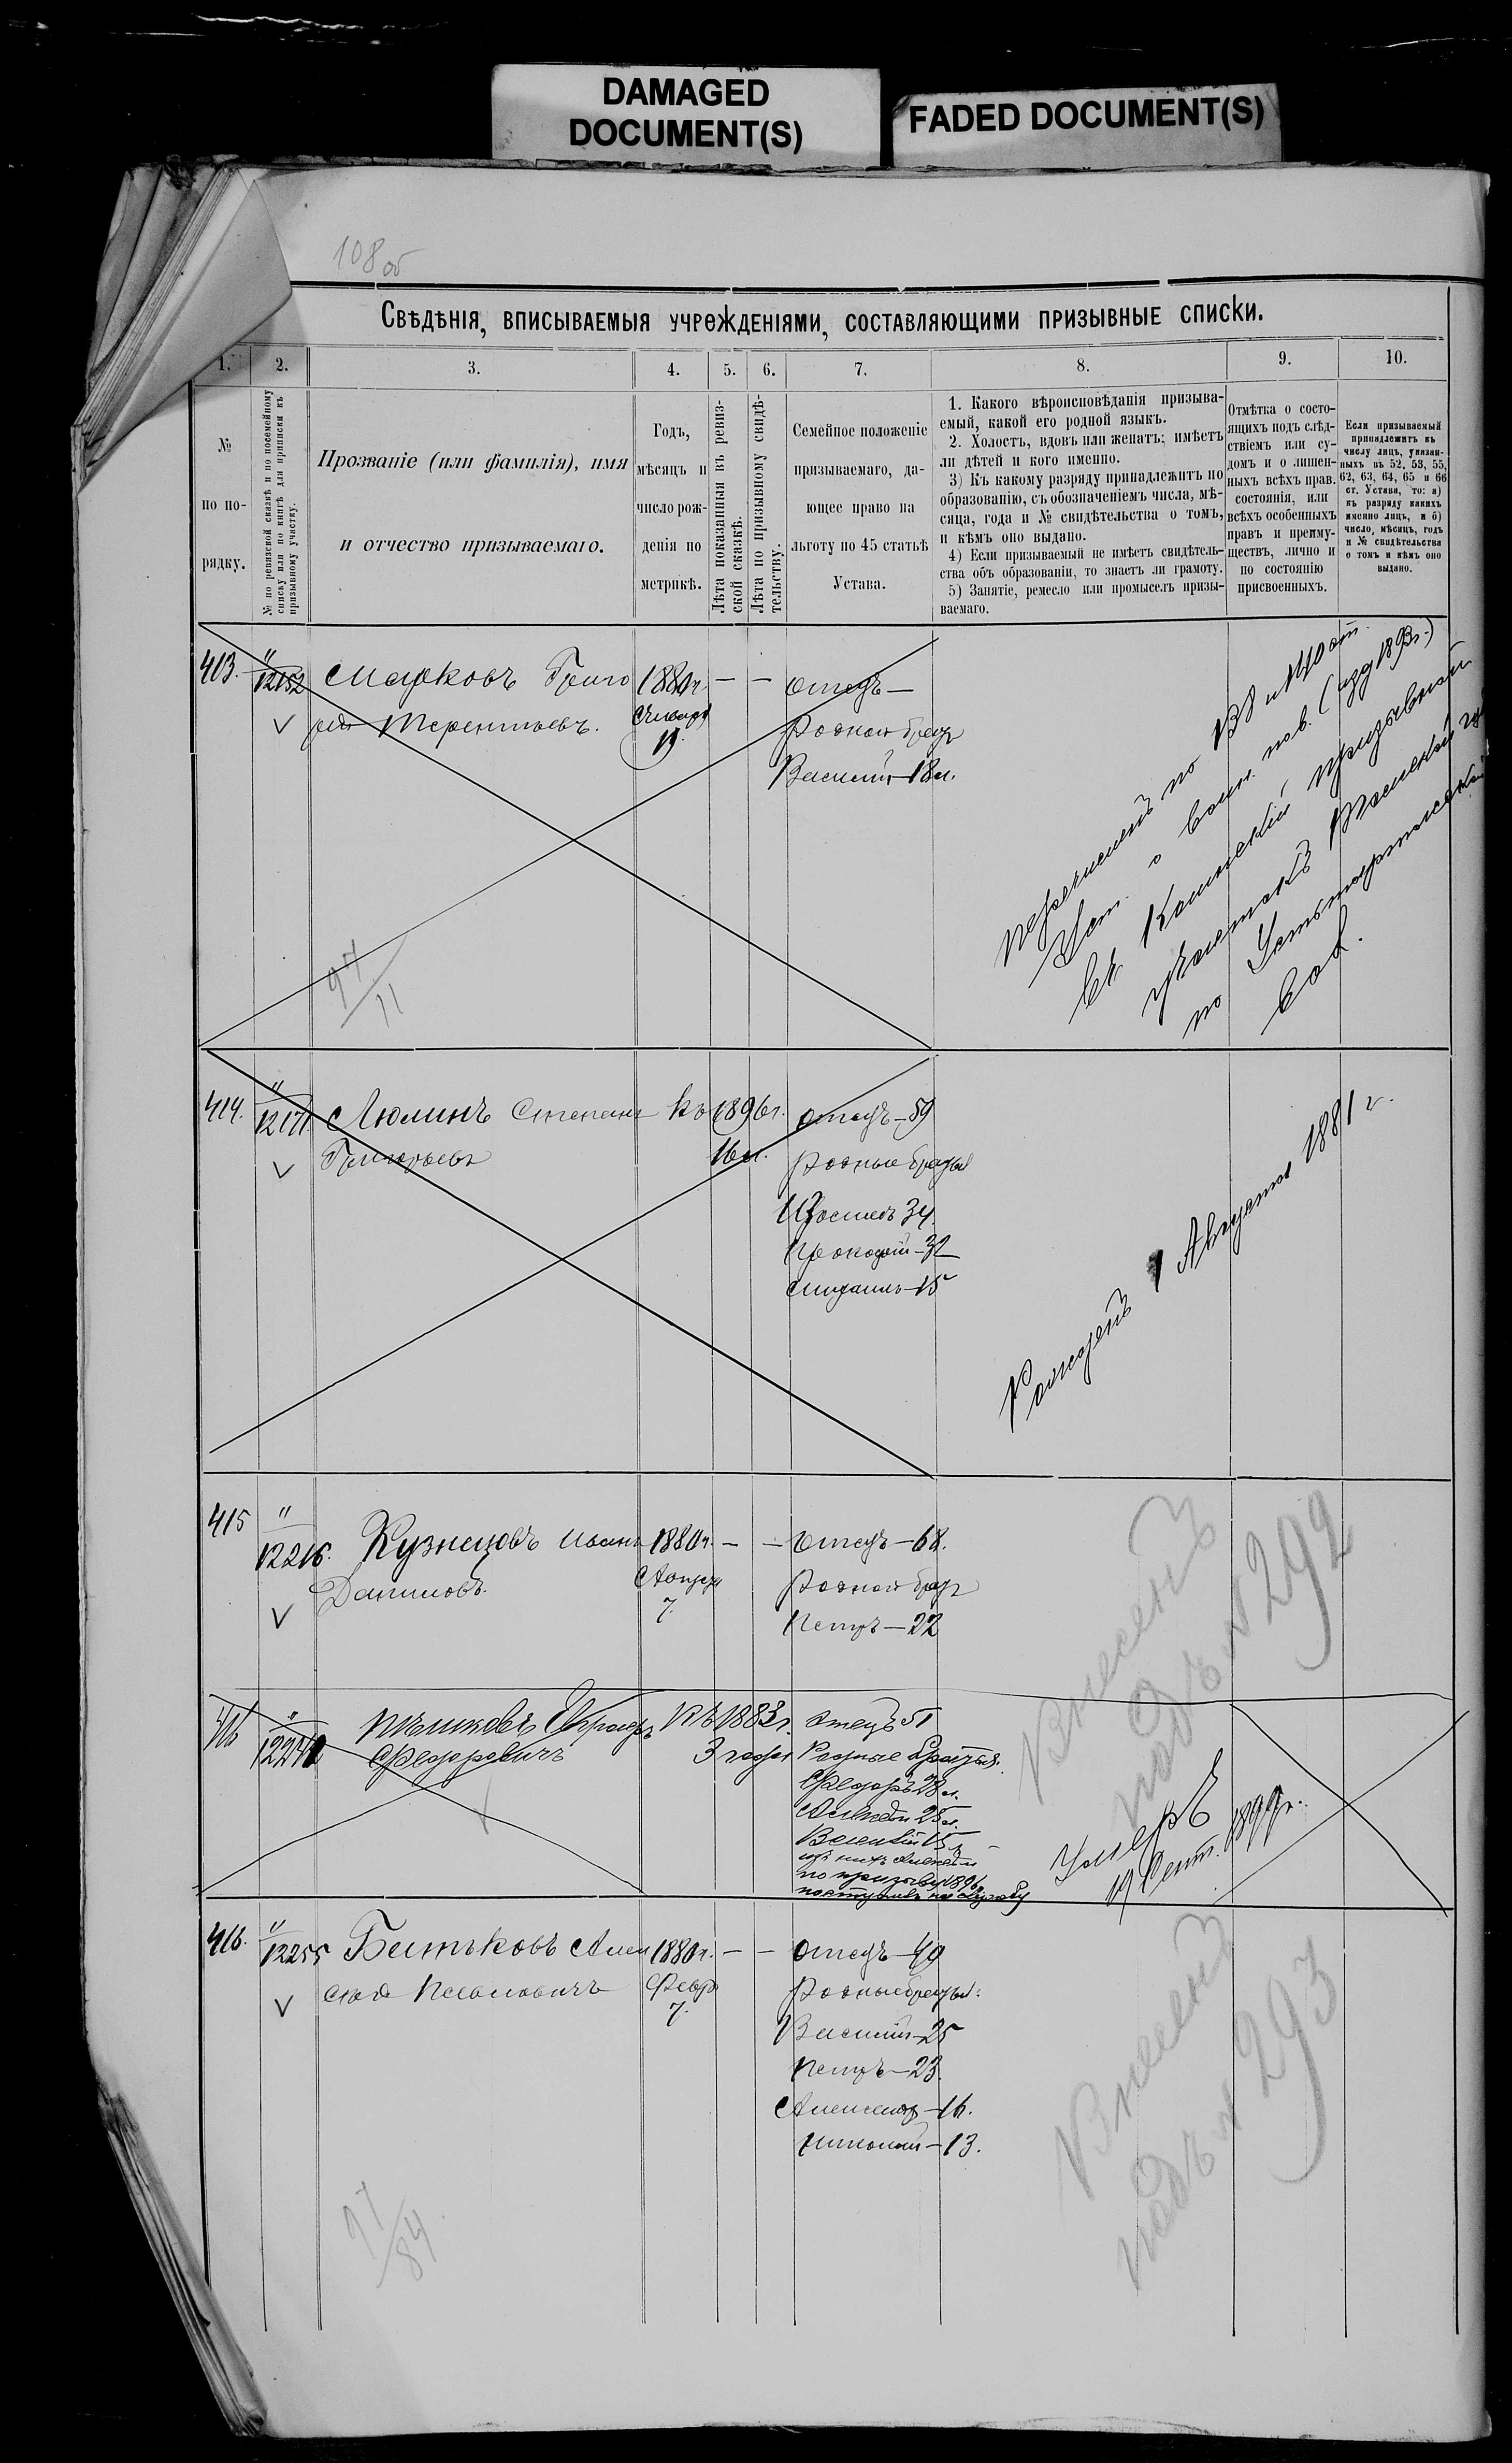 DAMAGED
DOCUMENT(S)
FADED DOCUMENT(S)
108 об
Свѣдѣнія, вписываемыя учрежденіями, составляющими призывные списки.
1.
2.
3.
4.
5.
6.
7.
8.
9.
10.
№
по по-
рядку.
№ по ревизской сказкѣ и по посемейному
списку или по книгѣ для приписки къ
призывному участку.
Прозваніе (или фамилія), имя
и отчество призываемаго.
Годъ,
мѣсяцъ и
число рож-
денія по
метрикѣ.
Лѣта показанныя въ ревиз-
ской сказкѣ.
Лѣта по призывному свидѣ-
тельству.
Семейное положеніе
призываемаго, да-
ющее право на
льготу по 45 статьѣ
Устава.
1. Какого вѣроисповѣданія призыва-
емый, какой его родной языкъ.
2. Холостъ, вдовъ или женатъ; имѣетъ
ли дѣтей и кого именно.
3) Къ какому разряду принадлежитъ по
образованію, съ обозначеніемъ числа, мѣ-
сяца, года и № свидѣтельства о томъ,
и кѣмъ оно выдано.
4) Если призываемый не имѣетъ свидѣтель-
ства объ образованіи, то знаетъ ли грамоту.
5) Занятіе, ремесло или промыселъ призы-
ваемаго.
Отмѣтка о состо-
ящихъ подъ слѣд-
ствіемъ или су-
домъ и о лишен-
ныхъ всѣхъ прав.
состоянія, или
всѣхъ особенныхъ
правъ и преиму-
ществъ, лично и
по состоянію
присвоенныхъ.
Если призываемый
принадлежитъ къ
числу лицъ, указан-
ныхъ въ 52, 53, 55,
62, 63, 64, 65 и 66
ст. Устава, то: а)
къ разряду какихъ
именно лицъ, и б)
число, мѣсяцъ, годъ
и № свидѣтельства
о томъ и кѣмъ оно
выдано.
413.
"
12152
Марковъ Григо
рій Терентьевъ.
1880 г.
Января
19.
— —
Отецъ —
Родной братъ
Василій 18 л.
Перечисленъ по 138 и 140 ст.
Уст. о воин. пов. (изд 189 г.)
въ Каинскій призывной
участокъ Томской губ
по Устьтартасской
вол.
97/11
414.
"
12171.
Люлинъ Степанъ
Григорьевъ
Къ 1896 г.
16 л.
Отецъ — 59
Родные братья
34
Прокофій — 32
15
Рожденъ 1 Августа 1881 г.
415
"
12216.
Кузнецовъ Иванъ
Даниловъ.
1880 г.
7.
— —
Отецъ — 68.
Родной братъ
Петръ — 22
Внесенъ
подъ № 292
"
Федоровичъ
Къ 1883 г.
3 года
Отецъ 51
Родные братья
Федоръ 28 л.
Алексѣй 25 л.
Василій 15 л
изъ нихъ Алексѣй
по призыву 1896 г
поступилъ на службу
Умеръ
19 Сент. 1899 г.
416.
"
12255
Битьковъ Алек
сѣй Павловичъ
1880 г.
Февр
7.
— —
Отецъ — 49
Родные братья:
Василій — 25
Петръ — 23.
Александр — 16.
Николай — 13.
Внесенъ
подъ № 293
97/84